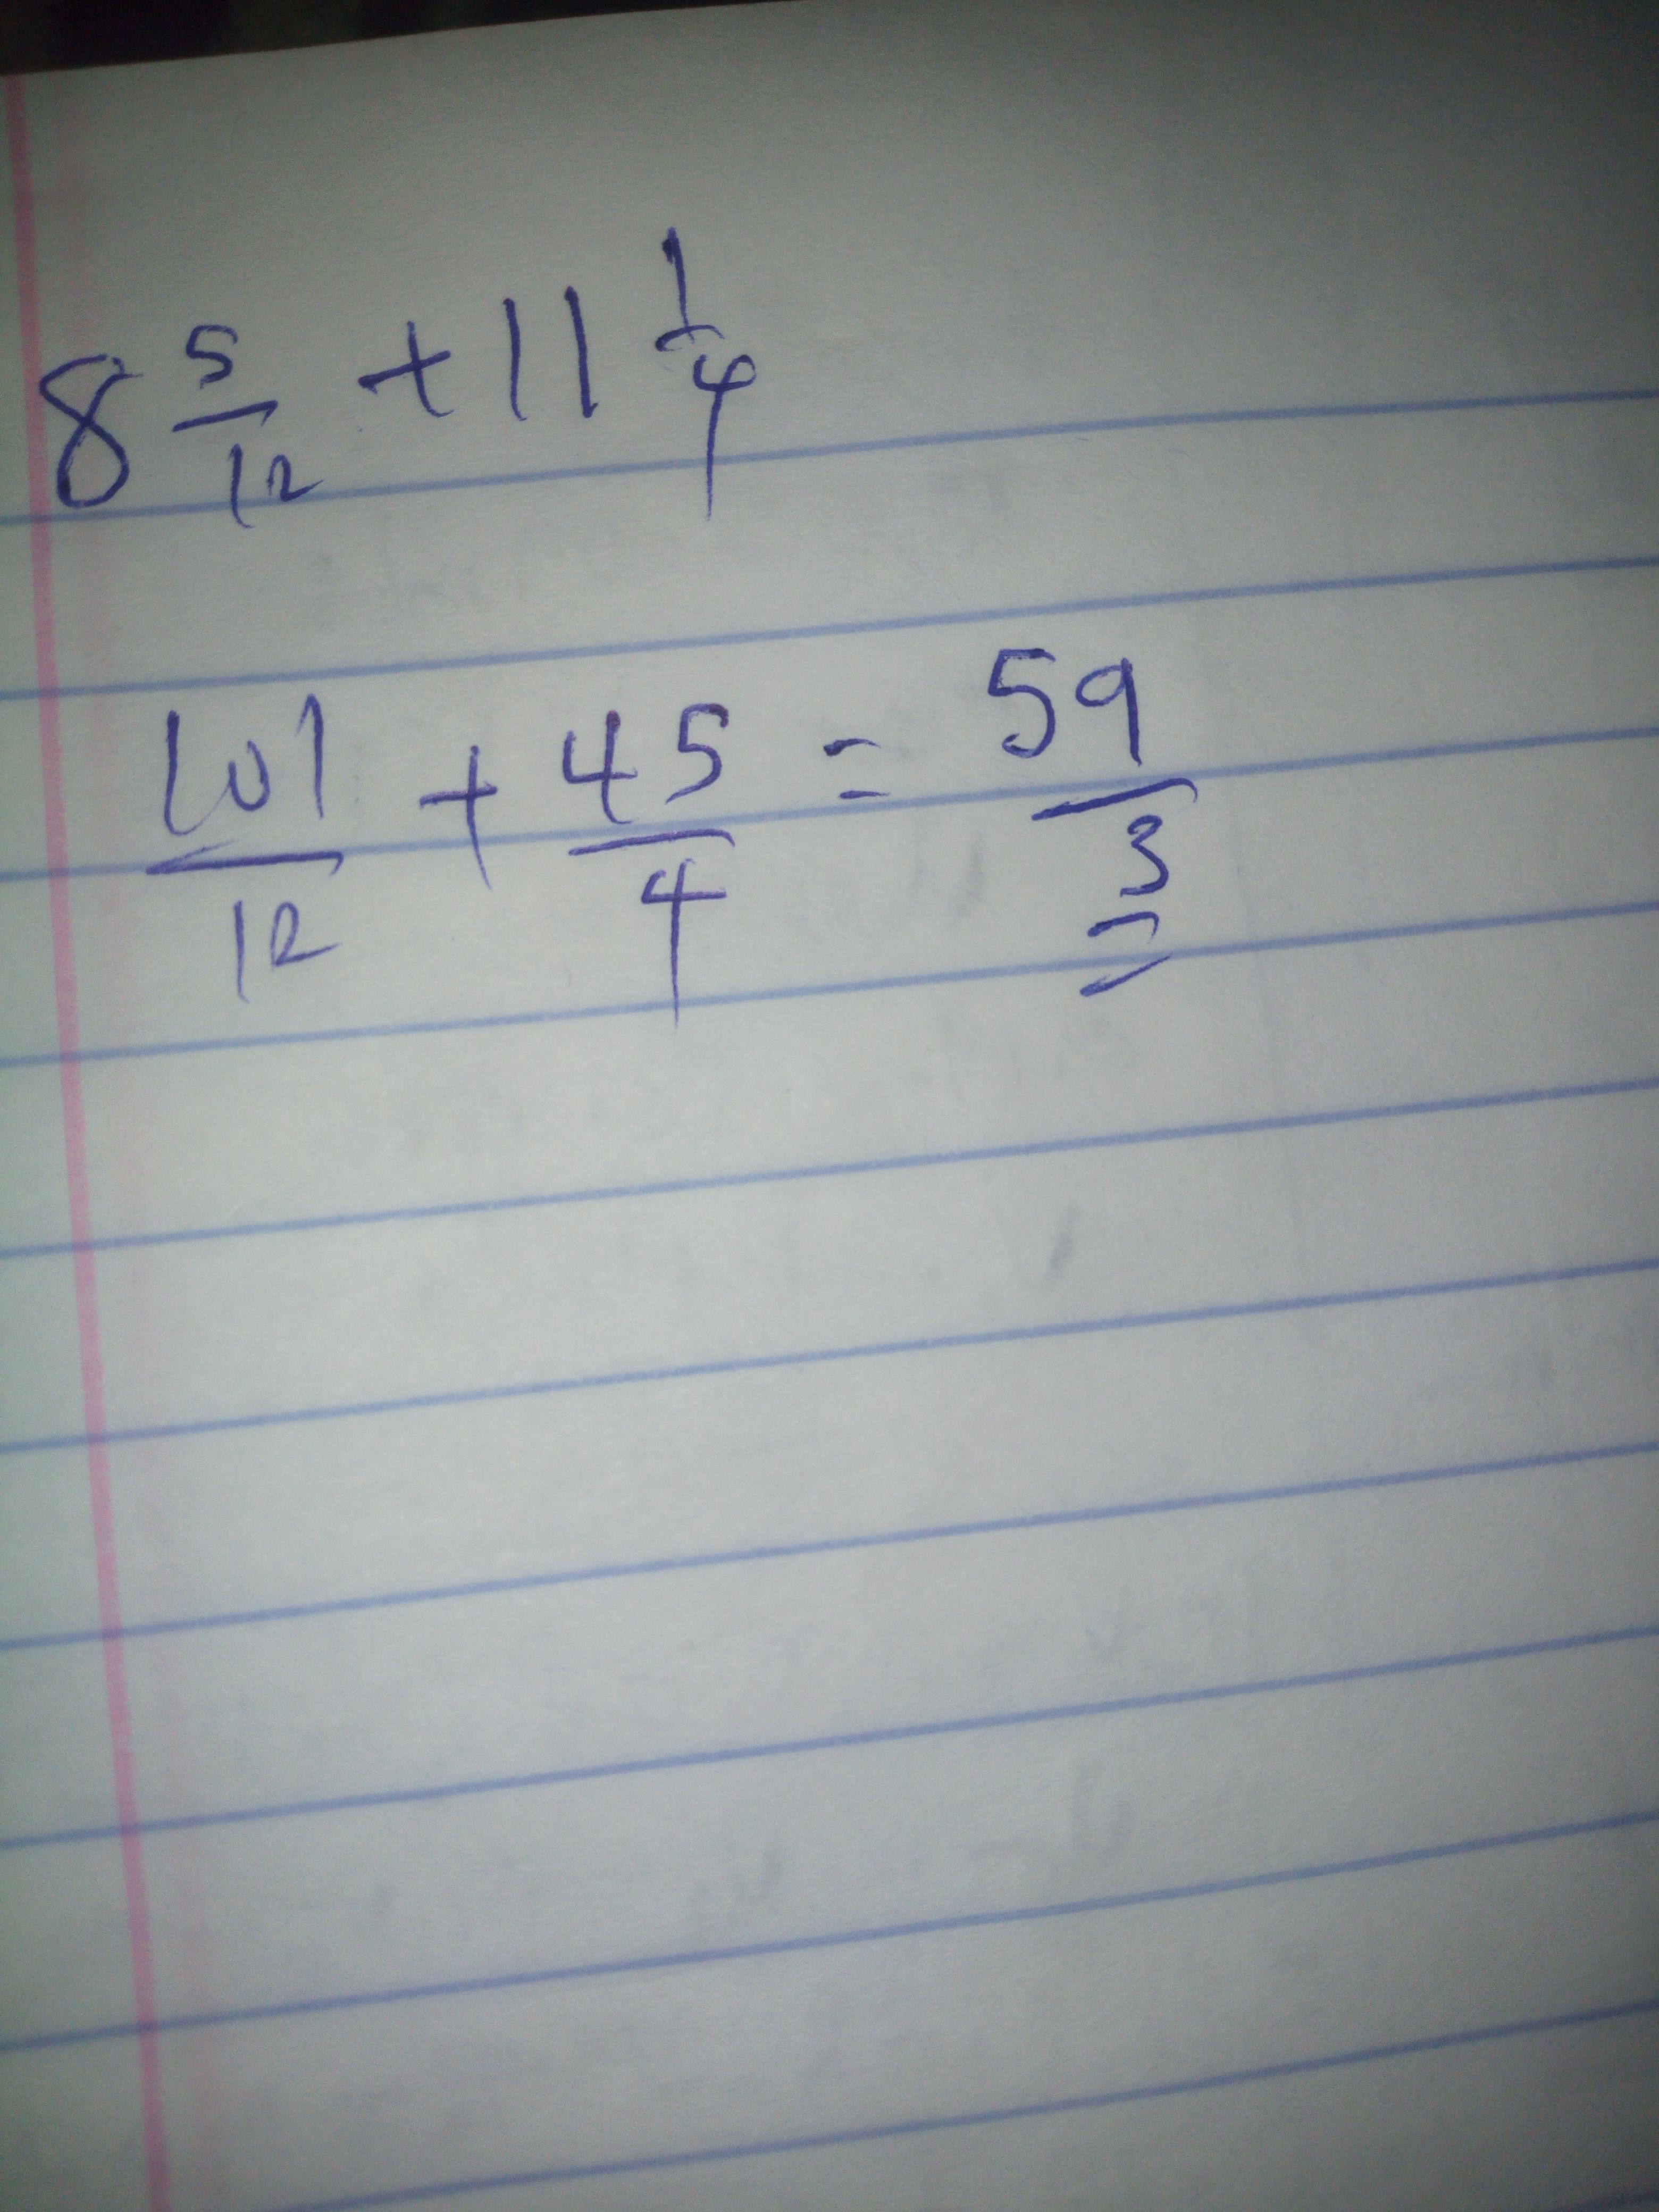 8 5/12 + 11 1/4
101/12 + 45/4 = 59/3